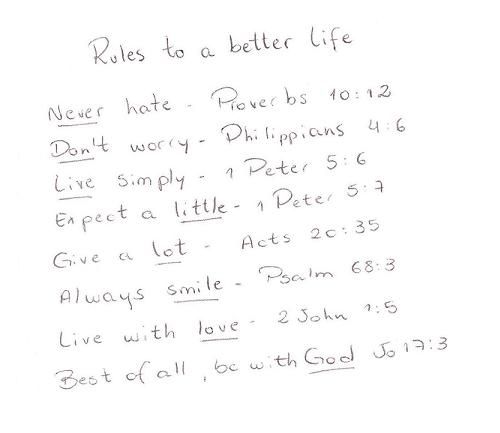 Rules to a better life
Never hate - Proverbs 10:12
Don't worry - Philippians 4:6
Live simply - 1 Peter 5:6
Expect a little - 1 Peter 5:7
Give a lot - Acts 20:35
Always smile - Psalm 68:3
Live with love - 2 John 1:5
Best of all, be with God Jo 17:3